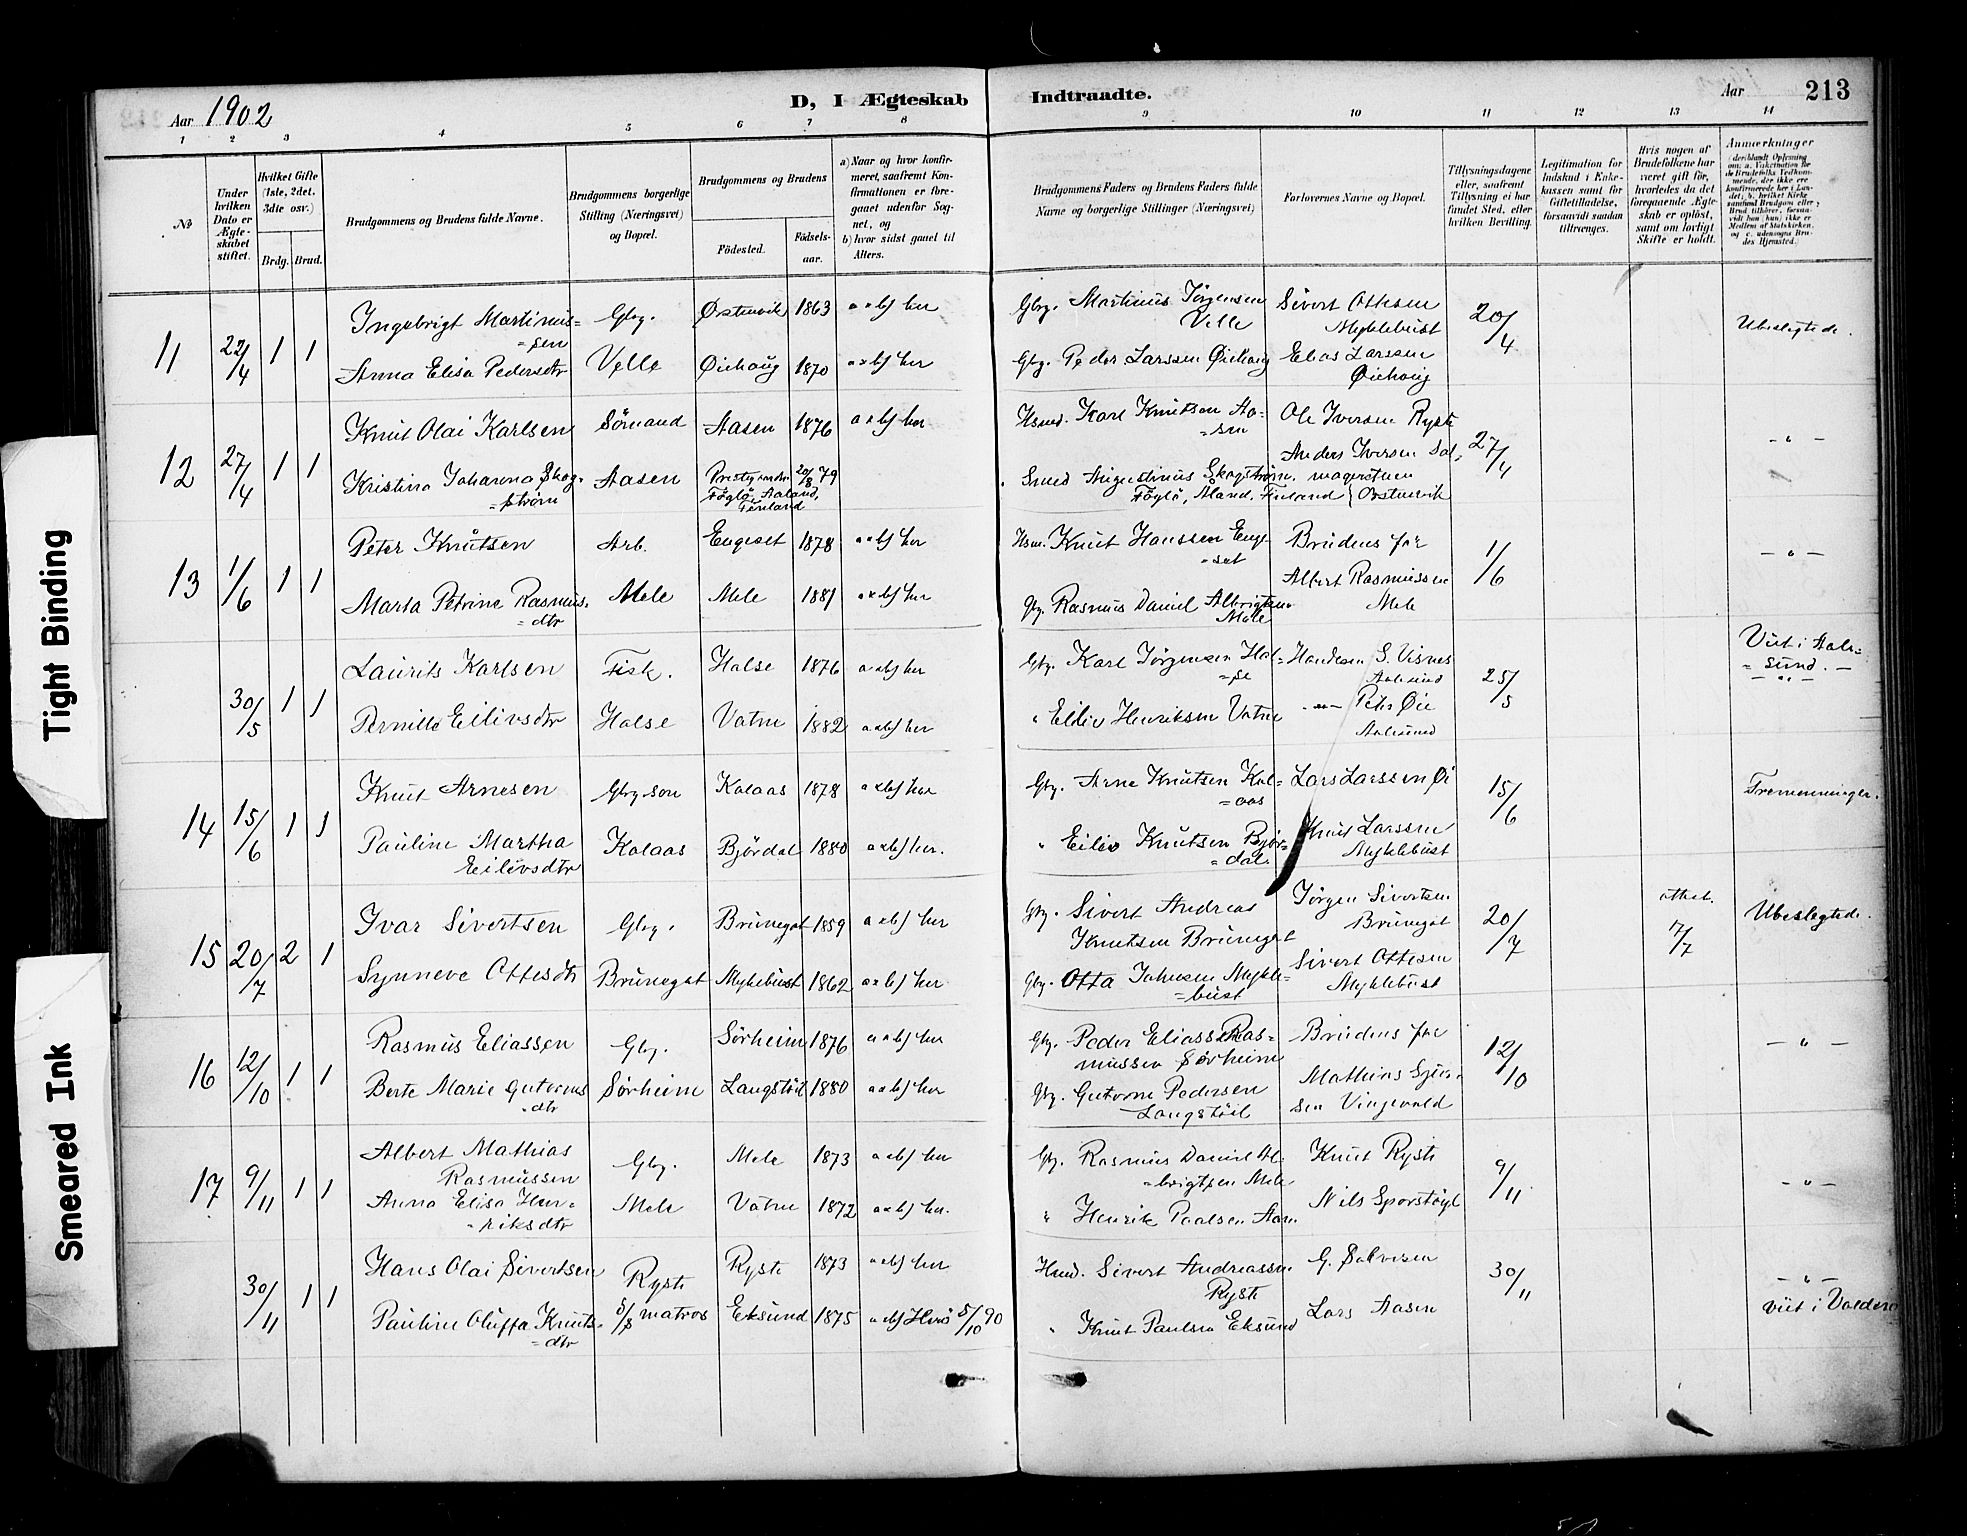 D, I Ægteskab Indtraadte.
Aar 1902
Aar 213
1 2 3 4 5 6 7 8 9 10 11 12 13 14
No
Under hvilken Dato er Ægteskabet stiftet.
Hvilket Gifte (1ste, 2det, 3die osv.)
Brdg. Brud.
Brudgommens og Brudens fulde Navne.
Brudgommens borgerlige Stilling (Næringsvei) og Bopæl.
Brudgommens og Brudens
Fødested.
Fødselsaar.
a) Naar og hvor konfirmeret, saafremt Konfirmationen er foregaaet udenfor Sognet, og
b) hvor sidst gaaet til Alters.
Brudgommens Faders og Brudens Faders fulde Navne og borgerlige Stillinger (Næringsvei)
Forlovernes Navne og Bopæl.
Tillysningsdagene eller, saafremt Tillysning ei har fundet Sted, efter hvilken Bevilling.
Legitimation for Indskud i Enkekassen samt for Giftetilladelse, forsaavidt saadan tiltrænges.
Hvis nogen af Brudefolkene har været gift før, hvorledes da det foregaaende Ægteskab er opløst, samt om lovligt Skifte er holdt.
Anmerkninger
11 22/4 1 1 Ingebrigt Martinus= =sen Gbg. Østenvik 1863 a x b) her Gbg. Martinus Jørgensen Velle Sivert Ottesen Myklebust 20/4 Ubeslegtede.
Anna Elisa Pedersdtr Velle Øiehaug 1870 a x b) her Gbg. Peder Larssen Øiehaug Elias Larssen Øiehaug
12 27/4 1 1 Knut Olai Karlsen Sömand Aasen 1876 a x b) her Husmd. Karl Knutsen Aa= =sen Ole Iversen Ryste 27/4 - " -
Kristina Johanna Skog= =strøm Aasen Föglö Aaland, Finland 20/8 79 Smed Augustinus Skogstrøm. Föglö, Åland. Finland Anders Iversen
13 1/6 1 1 Peter Knutsen Arb. Engeset 1878 a x b) her Hsm. Knut Hanssen Enge= =set Brudens far 1/6 - " -
Marta Petrine Rasmus= =dtr Mele Mele 1881 a x b) her Gbg. Rasmus Daniel Albrigtsen Mele Albert Rasmussen Mele
30/5 1 1 Laurits Karlsen Fisk. Halse 1876 a x b) her Gbg. Karl Jørgensen Hal= =se S. Visnes Aalesund 25/5 Viet i Aale= =sund. - - " -
Pernille Eilivsdtr Halse Vatne 1882 a x b) her " Eiliv Henriksen Vatne - " - Peter Øie Aalesund
14 15/6 1 1 Knut Arnesen Gbg. søn Kolaas 1878 a x b) her Gbg. Arne Knutsen Kol= =aas Lars Larssen Øi 15/6 Fremmenninger.
Pauline Martha Eilivsdtr Kolaas Bjørdal 1880 a x b) her. " Eiliv Knutsen Bjør= =dal. Knut Larssen Myklebust
15 20/7 2 1 Ivar Sivertsen Gbg. Brunegot 1859 a x b) her Gbg. Sivert Andreas Knutsen Brunegot Jørgen Sivertsen Brunegot 20/7 attest. 7/7 Ubeslegtede.
Synneve Ottesdtr Brunegot Myklebust 1862 a x b) her Gbg. Otto Johnsen Mykle= =bust Sivert Ottesen Myklebust
16 12/10 1 1 Rasmus Eliassen Gbg. Sørheim 1876 a x b) her Gbg. Peder Eliassen Ras= mussen Sørheim Brudens far 12/10 - " -
Berte Marie Guttorms =dtr Sørheim Langstøil 1880 a x b) her Gbg. Guttorm Pedersen Langstøil Mathias
17 9/11 1 1 Albert Mathias Rasmussen Gbg. Mele 1873 a x b) her Gbg. Rasmus Daniel Al= =brigtsen Mele Knut Ryste 9/11 - " -
Anna Elisa Hen= =riksdtr Mele Vatne 1872 a x b) her. " Henrik Paalsen Nils Sporstøyl
30/11 1 1 Hans Olai Sivertsen Ryste Ryste 1873 a x b) her Husmd. Sivert Andreassen Ryste G. 30/11 - " -
Pauline Oluffa Knuts= =dtr matros Eksund 1875 a x b) Herø 5/10 90 " Knut Paulsen Eksund Lars Aasen viet i Valderø
Tight Binding
Smeared Ink